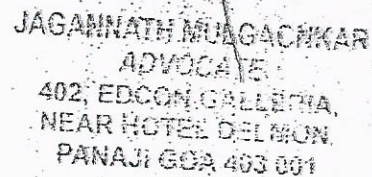 JAGANNATH MULGAONKAR
ADVOCATE
402, EDCON GALLERIA,
NEAR HOTEL DELMON,
PANAJI GOA 403 001